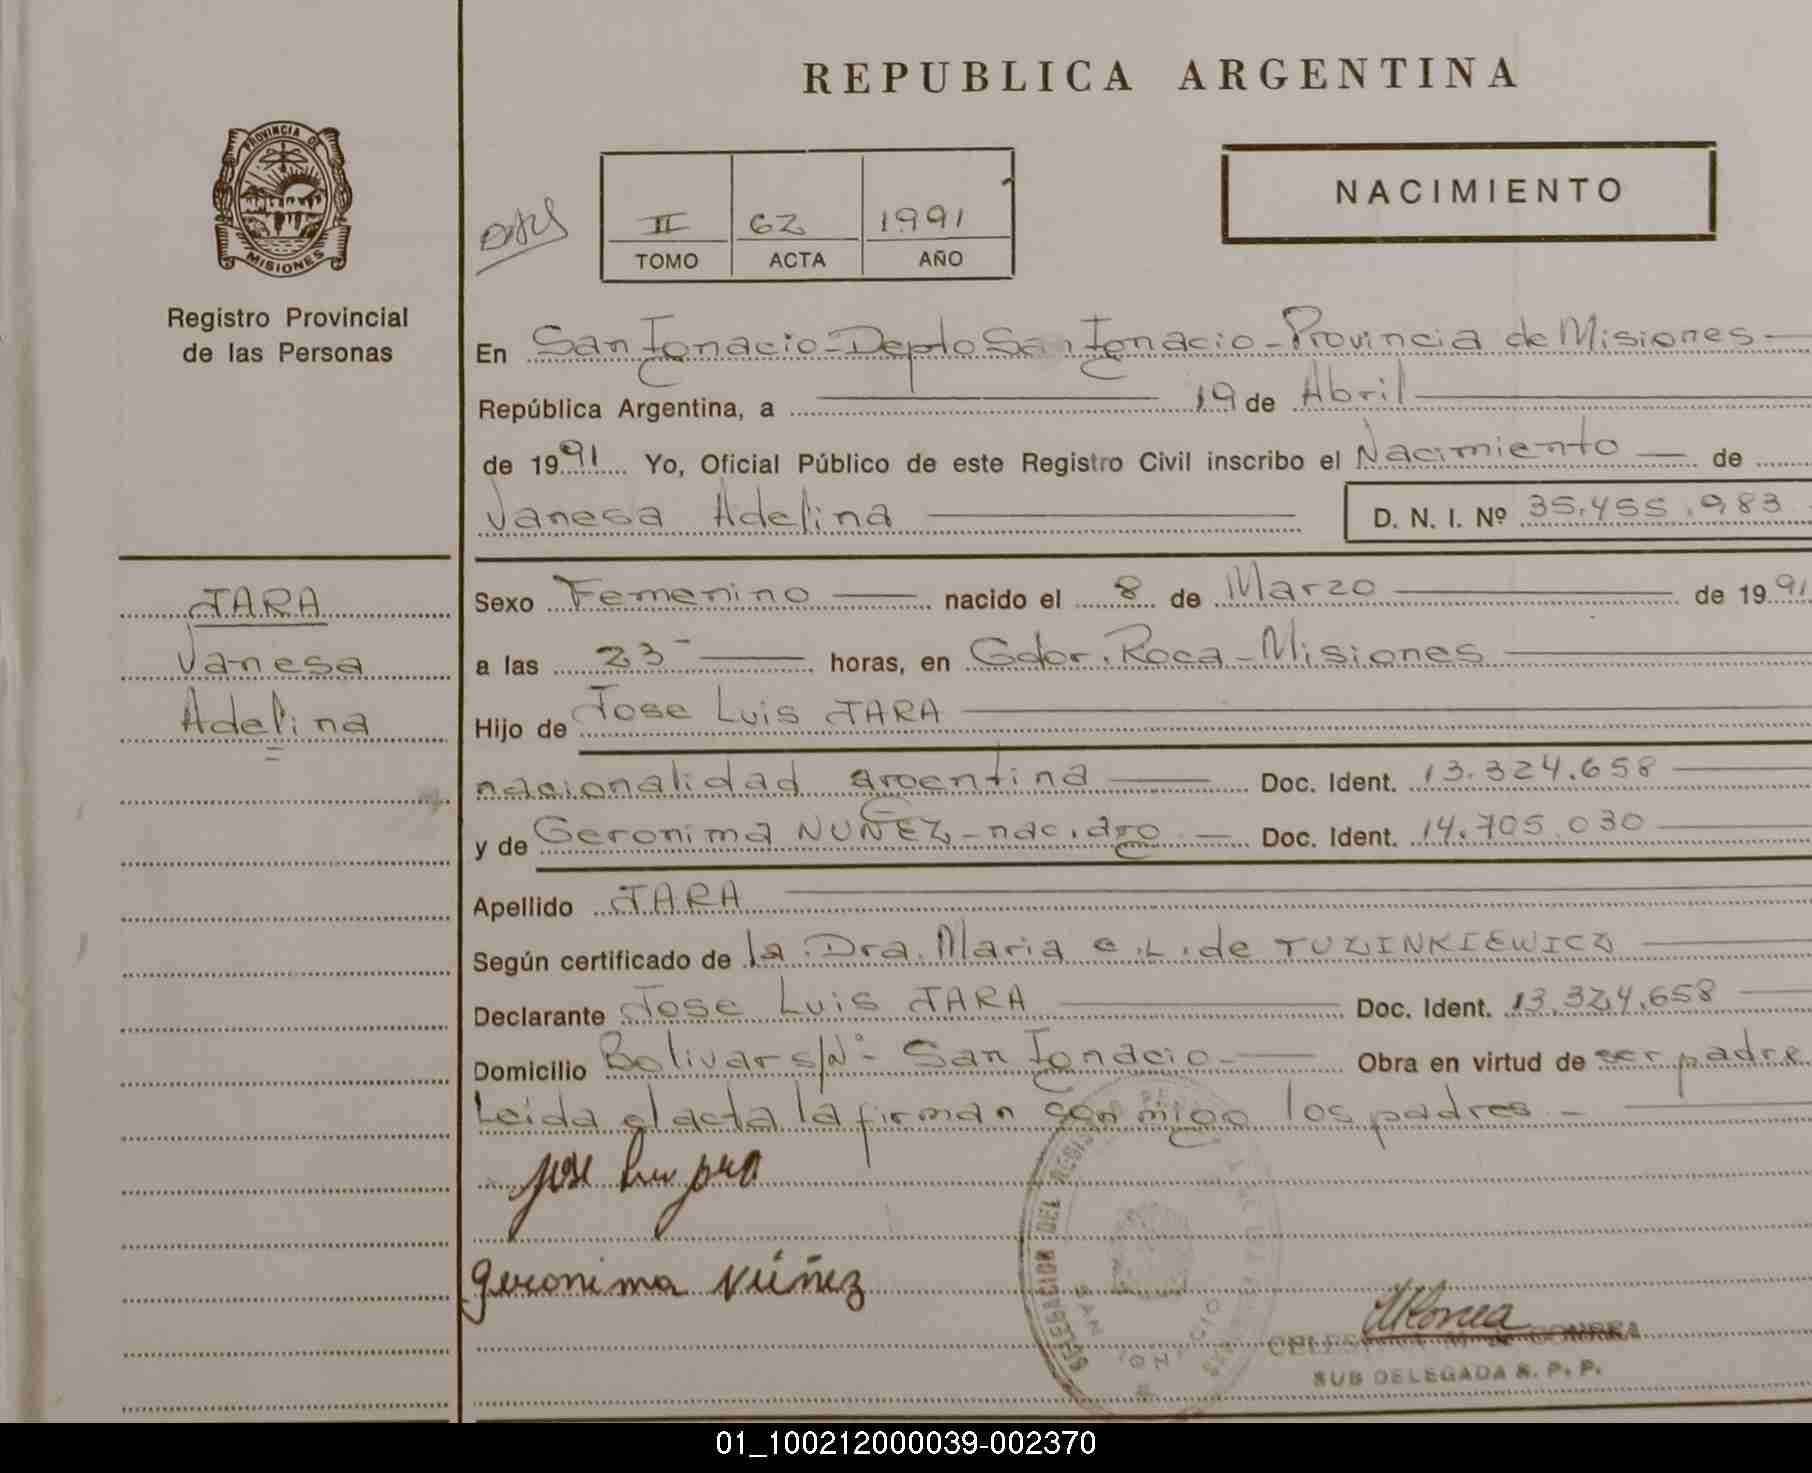 REPUBLICA ARGENTINA
PROVINCIA DE
MISIONES
Registro Provincial
de las Personas
II 62 1991
TOMO ACTA AÑO
NACIMIENTO
En San Ignacio - Depto San Ignacio - Provincia de Misiones
República Argentina, a 19 de Abril
de 1991 Yo, Oficial Público de este Registro Civil inscribo el Nacimiento de
Vanesa Adelina D. N. I. Nº 35.455.983
JARA
Vanesa
Adelina
Sexo Femenino nacido el 8 de Marzo de 1991
a las 23 horas, en Gdor. Roca - Misiones
Hijo de Jose Luis JARA
nacionalidad argentina Doc. Ident. 13.324.658
y de Geronima NUÑEZ - nac. arg Doc. Ident. 14.705.030
Apellido JARA
Según certificado de la Dra. Maria e. L. de TUZINKIEWICZ
Declarante Jose Luis JARA Doc. Ident. 13.324.658
Domicilio Bolivar s/Nº - San Ignacio - Obra en virtud de ser padre
Leida el acta la firman conmigo los padres -
Jose Luis Jara
Geronima Núñez
DELEGACION DEL REGISTRO
SAN IGNACIO
SUB DELEGADA R. P. P.
01_100212000039-002370